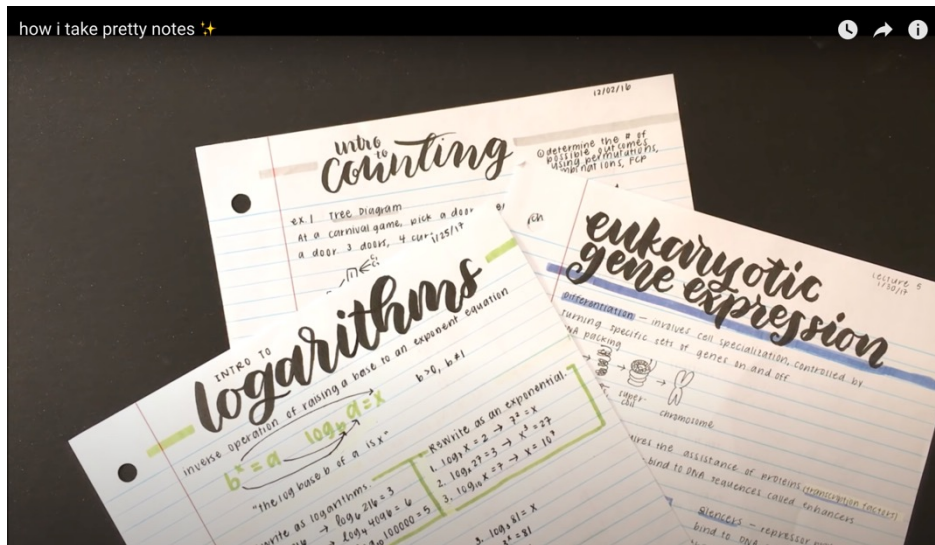 how i take pretty notes ✨
12/02/16
intro
to
counting
determine the # of
possible outcomes
using permutations,
combinations, FCP
ex. 1 Tree Diagram
At a carnival game, pick a door
a door 3 doors, 4 cur
1/25/17
INTRO TO
logarithms
inverse operation of raising a base to an exponent equation
b>0, b≠1
bˣ = a log_b a = x
"the log base b of a is x"
Rewrite as an exponential.
1. log₇ x = 2 → 7² = x
2. logₓ 27 = 3 → x³ = 27
3. log₁₀ x = 7 → x = 10⁷
write as logarithms.
→ log₆ 216 = 3
→ log₄ 4096 = 6
100000 = 5
3. log₃ 81 = x
= 81
eukaryotic
gene expression
Lecture 5
1/30/17
Differentiation — involves cell specialization, controlled by
turning specific sets of genes on and off
DNA packing
super-
coil
chromosome
the assistance of proteins (transcription factors)
bind to DNA sequences called enhancers
Silencers – repressor
bind to DNA